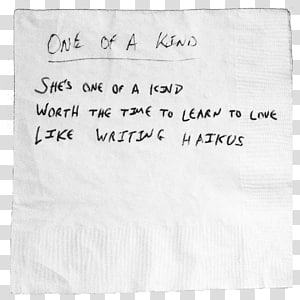 One of a Kind
She's one of a kind
Worth the time to learn to love
Like writing haikus